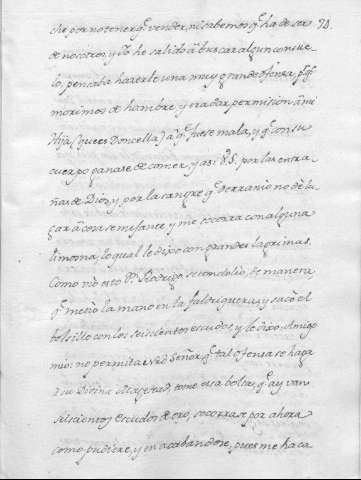 che por no tener q̃ vender, ni sabemos q̃ ha de ser 74.
de nosotros, y Yo he salido à buscar algun consue-
lo, pensaba hazerle una muy grande ofensa, pq̃
morimos de hambre, y era dar permission à mi
Hija (que es Doncella) à q̃ fuese mala, y q̃ con su
cuerpo ganase de comer, y asi VS. por las entra-
ñas de Dios, y por la sangre q̃ derramò no dè lu-
gar à cosa semejante, y me socorra con alguna
limosna, lo qual le dixo con grandes lagrimas.
Como viò esto Dⁿ. Rodrigo se condoliò, de manera
q̃ metiò la mano en la faltriquera, y sacò el
bolsillo con los seiscientos escudos, y le dixo: Amigo
mio: no permita Nrô Señor q̃ tal ofensa se haga
à su Divina Magestad, tome esa bolsa, q̃ ay van
seiscientos Escudos de oro, socorrase por ahora
como pudiere, y en acabandose, pues me haca